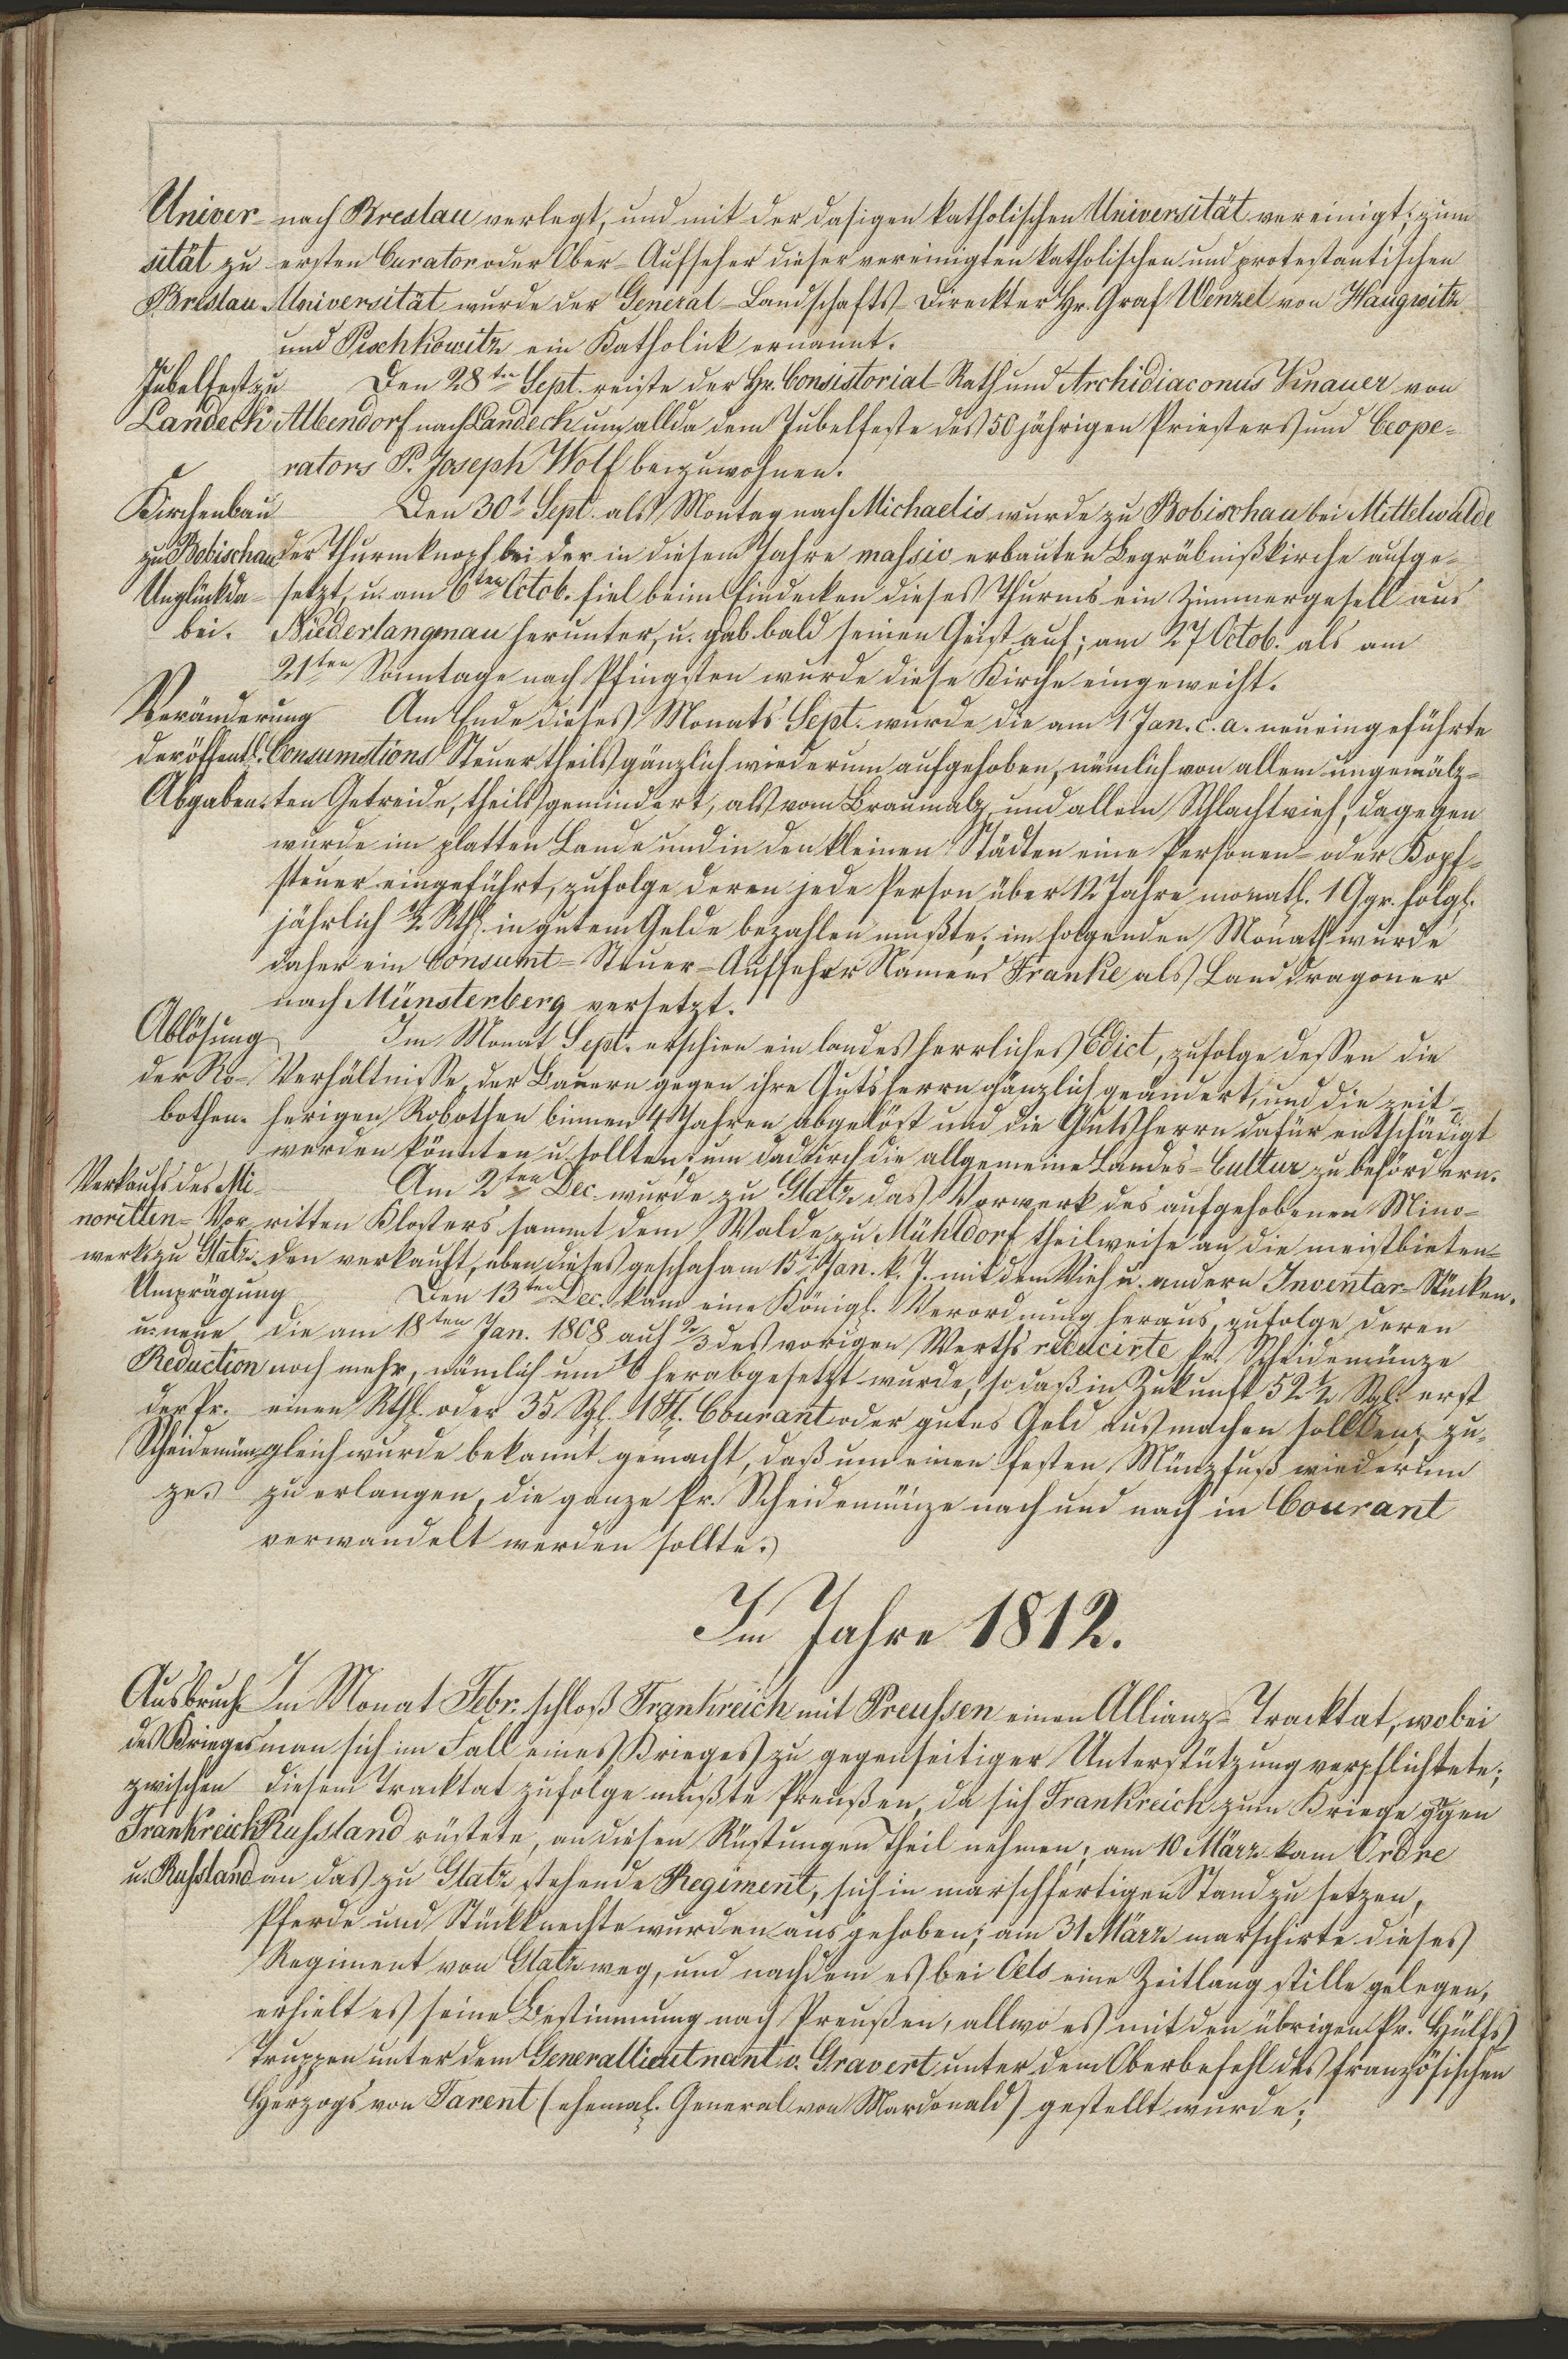 Univer- nach Breslau verlegt, und mit der dasigen katholischen Universität vereinigt; zum
sität zu ersten Curator oder Ober-Aufseher dieser vereinigten katholischen und protestantischen
Breslau. Universität wurde der General-Landschafts-Direckter Hr. Graf Wenzel von Haugwitz
und Pischkowitz ein Katholick ernannt.
Jubelfest zu Den 28ten Sept. reiste der Hr. Consistorial-Rath und Archidiaconus Knauer von
Landeck Albendorf nach Landeck um allda dem Jubelfeste des 50 jährigen Priesters und Coope-
rators P. Joseph Wolf beizuwohnen.
Kirchenbau Den 30t Sept. als Montag nach Michaelis wurde zu Bobischau bei Mittelwalde
zu Bobischau der Thurmknopf bei der in diesem Jahre massiv erbauten Begräbnißkirche aufge-
Unglück da- setzt, u. am 6ten Octob. fiel beim Eindecken dieses Thurms ein Zimmergesell aus
bei. Niederlangenau herunter, u. gab bald seinen Geist auf; am 27 Octob. als am
21ten Sonntage nach Pfingsten wurde diese Kirche eingeweiht.
Veränderung Am Ende dieses Monats Sept. wurde die am 1 Jan. c. a. neueingeführte
der öffentl. Consumtions Steuer theils gänzlich wiederum aufgehoben, nämlich von allem ungemälz-
Abgaben. ten Getreide, theils gemindert, als vom Braumalz und allem Schlachtvieh, dagegen
wurde im platten Lande und in den kleinen Städten eine Personen- oder Kopf-
steuer eingeführt, zufolge deren jede Person über 12 Jahre monatl. 1 Ggr. folgl.
jährlich ½ Rthl. in gutem Gelde bezahlen mußte; im folgenden Monath wurde
daher ein Consumt-Steuer-Aufseher Namens Franke als Landdragoner
nach Münsterberg versetzt.
Ablösung Im Monat Sept. erschien ein landesherrliches Edict, zufolge dessen die
der Ro- Verhältnisse der Bauern gegen ihre Gutsherrn gänzlich geändert, und die zeit-
bothen. herigen Robothen binnen 4 Jahren abgelöst und die Gutsherrn dafür entschädigt
werden könnten u. sollten, um dadurch die allgemeine Landes-Cultur zu befördern.
Verkaufs des Mi- Am 2ten Dec. wurde zu Glatz das Vorwerk des aufgehobenen Mino-
noritten-Vor- ritten Klosters sammt dem Walde zu Mühldorf theilweise an die meistbieten-
werks zu Glatz. den verkauft, eben dieses geschah am 15t Jan. k. J. mit dem Vieh u. andern Inventar-Stücken.
Umprägung Den 13ten Dec. kam eine Königl. Verordnung heraus, zufolge deren
u. neue die am 18ten Jan. 1808 auf 2/3 des vorigen Werths reducirte Pr. Scheidemünze
Reduction noch mehr, nämlich um 1/6 herabgesetzt wurde, so daß in Zukunft 52 ½ Sgl. erst
der Pr. einen Rthl. oder 35 Sgl. 1 Fl. Courant oder gutes Geld ausmachen sollten; zu-
Scheidemün- gleich wurde bekannt gemacht, daß um einen festen Münzfuß wiederum
ze. zu erlangen, die ganze Pr. Scheidemünze nach und nach in Courant
verwandelt werden sollte.
Im Jahre 1812.
Ausbruch Im Monat Febr. schloß Frankreich mit Preussen einen Allianz-Tracktat, wobei
des Krieges man sich im Fall eines Krieges zu gegenseitiger Unterstützung verpflichtete;
zwischen diesem Tracktat zufolge mußte Preußen, da sich Frankreich zum Kriege gegen
Frankreich Russland rüstete, an diesen Rüstungen Theil nehmen; am 10 März kam Ordre
u. Russland an das zu Glatz stehende Regiment, sich in marschfertigen Stand zu setzen,
Pferde und Stückknechte wurden ausgehoben; am 31 März marschirte dieses
Regiment von Glatz weg, und nachdem es bei Oels eine Zeitlang stille gelegen,
erhielt es seine Bestimmung nach Preußen, allwo es mit den übrigen Pr. Hülfs
Truppen unter dem Generallieutnant v. Gravert unter dem Oberbefehl des französischen
Herzogs von Tarent (ehemal. General von Mardonald) gestellt wurde;